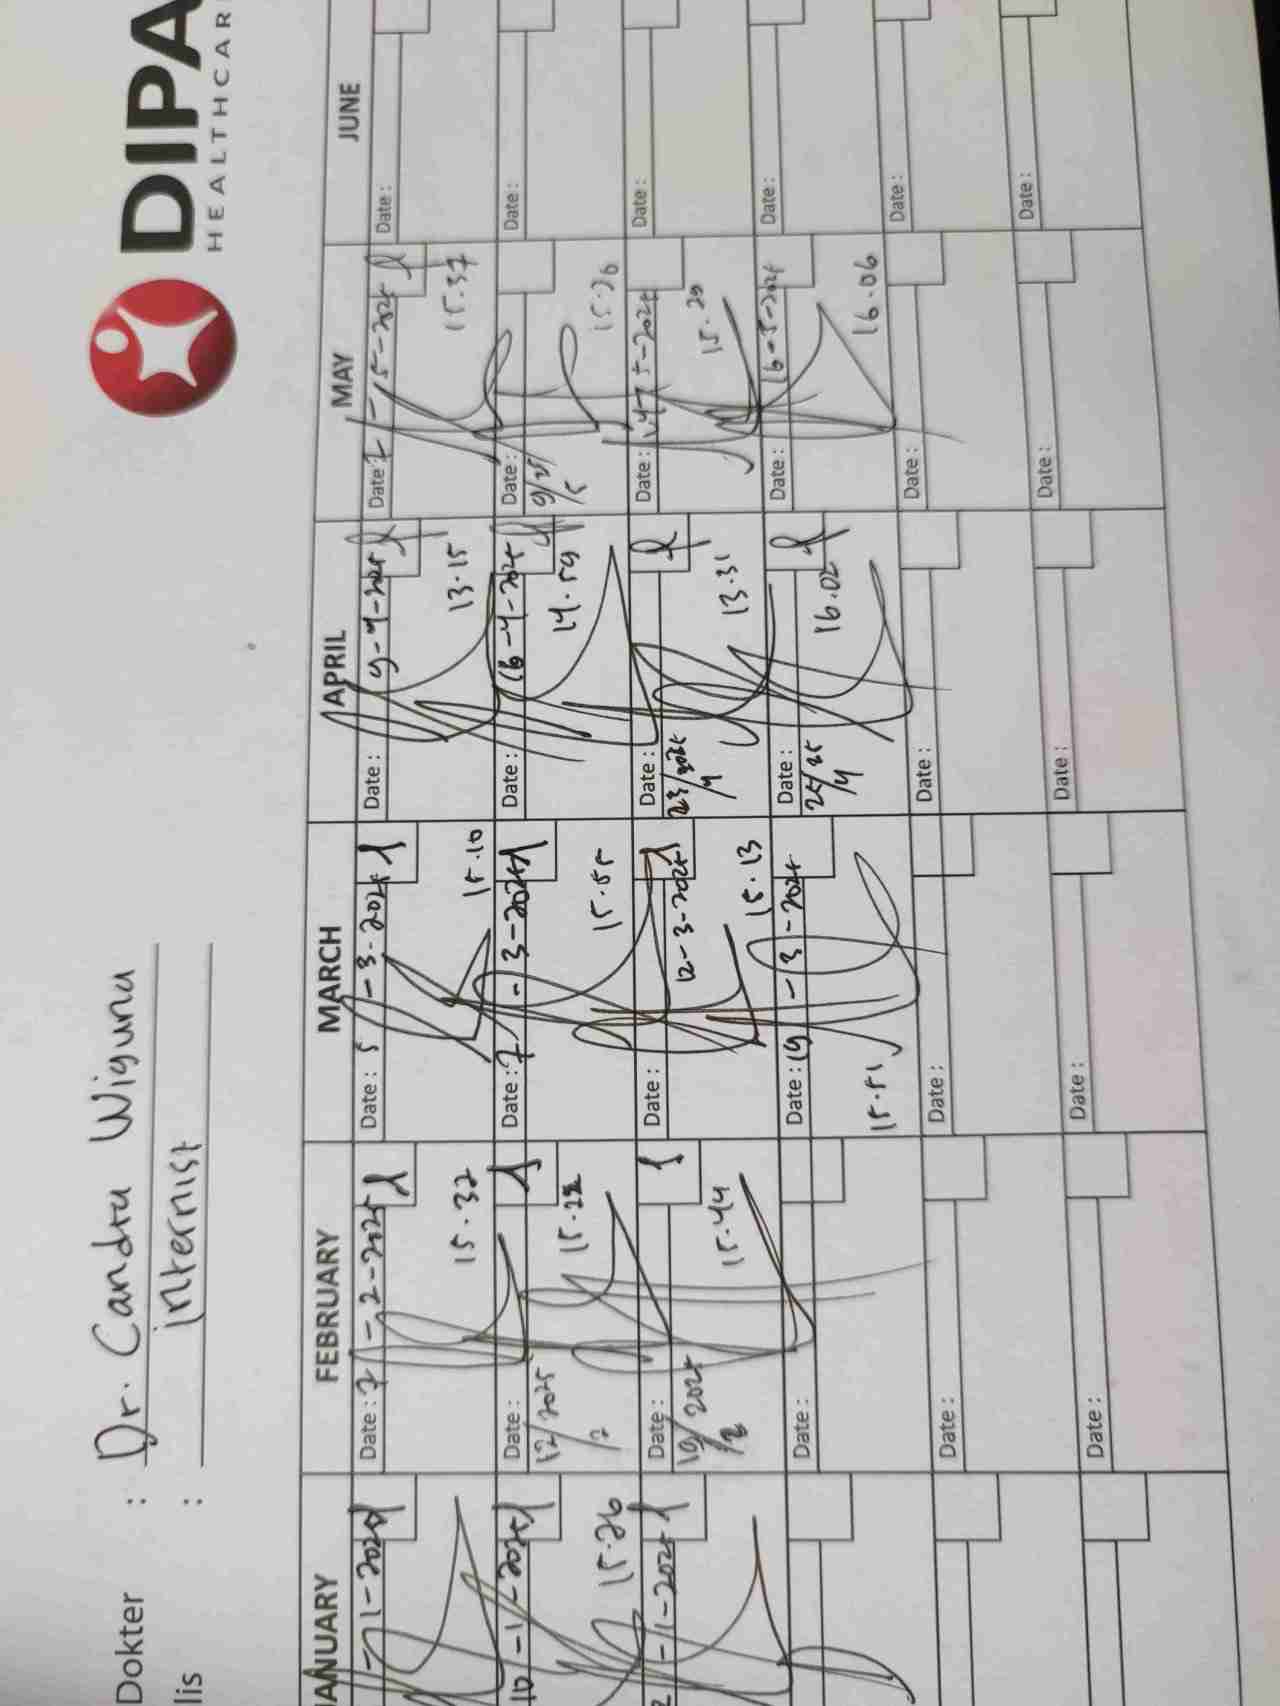 DIPA
HEALTHCAR
Dokter : Dr. Candra Wiguna
lis : Internist
ANUARY FEBRUARY MARCH APRIL MAY JUNE
-1-2025 Date: 7-2-2025 Date: 5-3-2025 Date: 9-4-2025 Date: 2-5-2025 Date:
15.37 15.10 13.15 15.37
10-1-2025 Date: Date: 7-3-2025 Date: 16-4-2025 Date: Date:
15.26 12/2025 15.55 14.59 9/25 15.26
/2 /5
-1-2025 Date: Date: 12-3-2025 Date: Date: 14-5-2025 Date:
19/2025 15.44 15.13 23/2025 13.31 15.29
/2 /4
Date: Date: 19-3-2025 Date: Date: 16-5-2025 Date:
15.51 25/25 16.02 16.06
/4
Date: Date: Date: Date: Date:
Date: Date: Date: Date: Date: